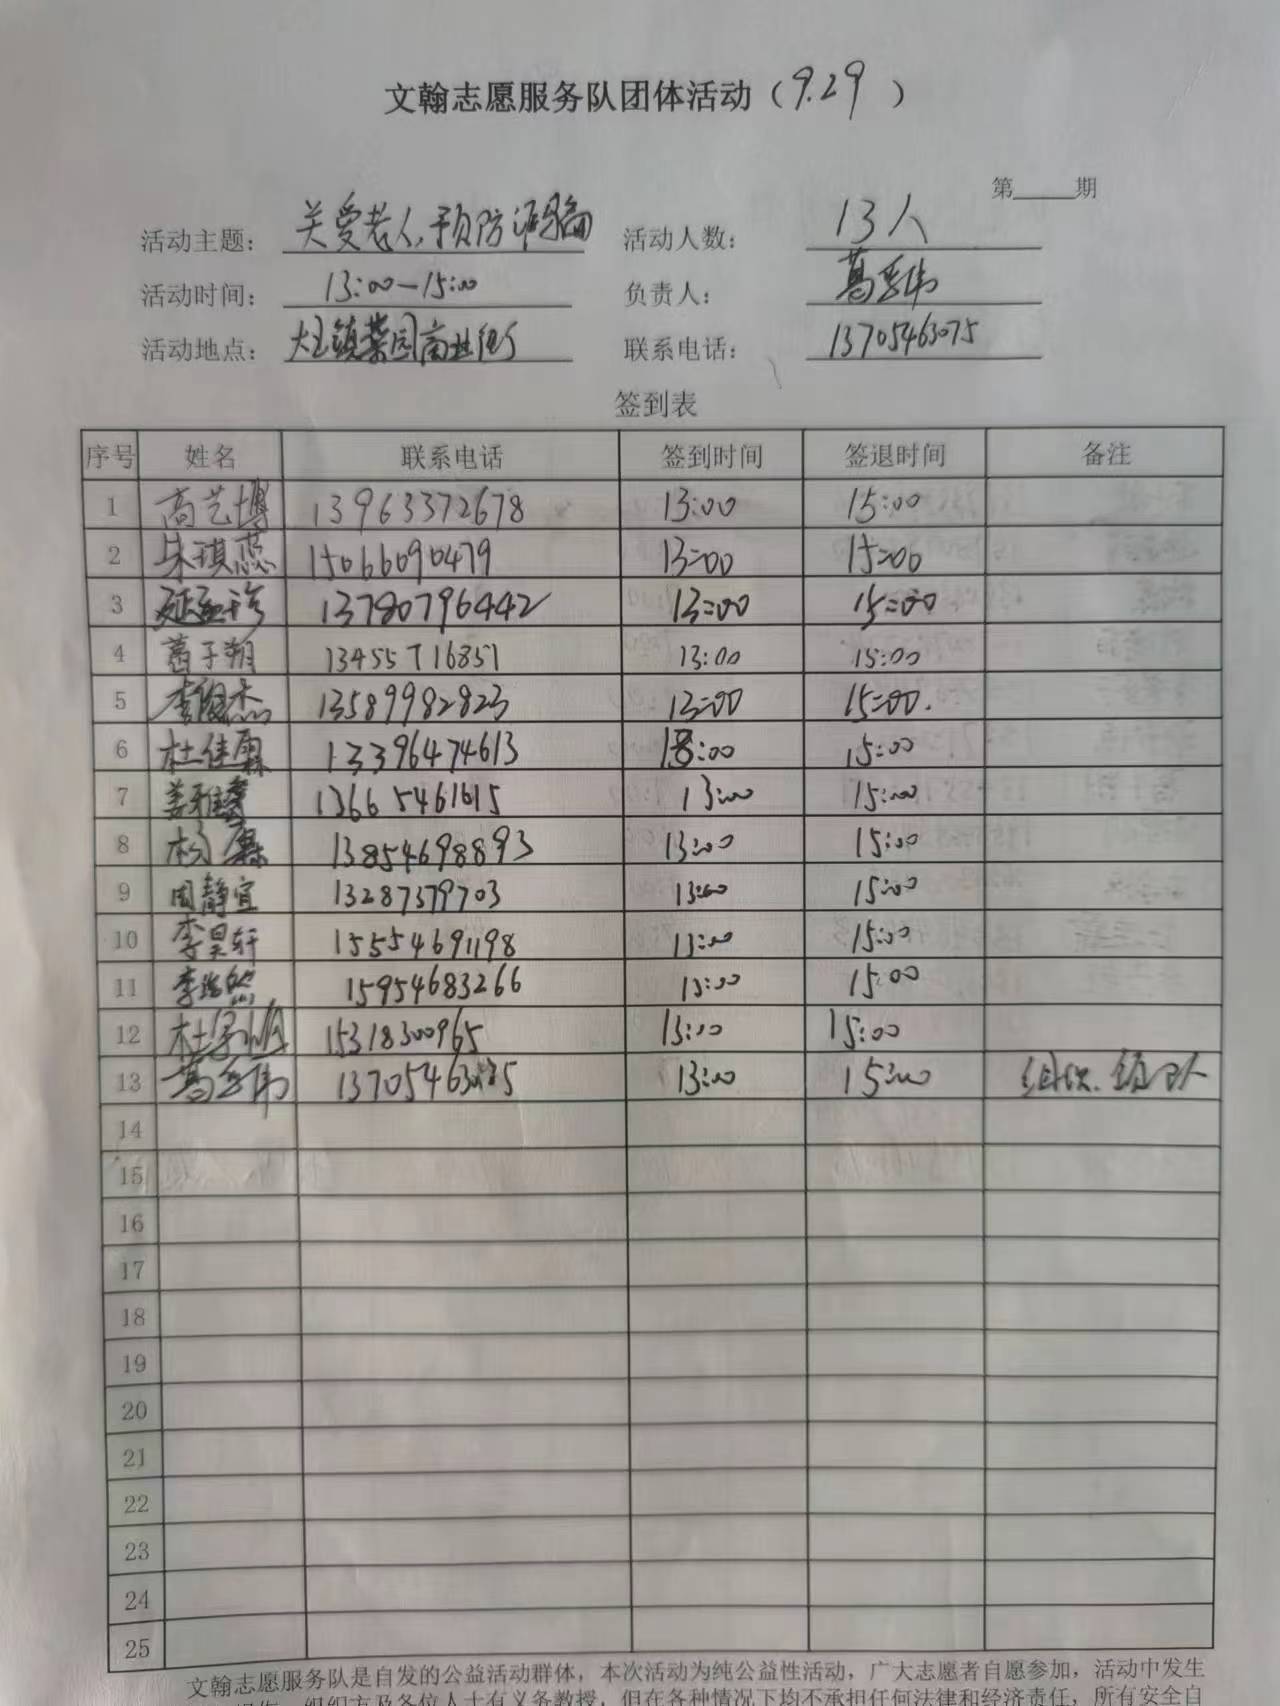 文翰志愿服务队团体活动（9.29）
第____期
活动主题： 关爱老人,预防诈骗 活动人数： 13人
活动时间： 13:00-15:00 负责人： 葛
活动地点： 大王镇菜园商业街 联系电话： 13705463075
签到表
序号 姓名 联系电话 签到时间 签退时间 备注
1 高艺博 13963372678 13:00 15:00
2 朱琪蕊 15066090479 13:00 15:00
3 13780796442 13:00 15:00
4 葛子朔 13455716851 13:00 15:00
5 李俊杰 13589982823 13:00 15:00.
6 杜佳霖 13396474613 13:00 15:00
7 姜雅 13665461615 13:00 15:00
8 杨霖 13854698893 13:00 15:00
9 周静宜 13287379703 13:00 15:00
10 李昊轩 15554691198 13:00 15:00
11 李 15954683266 13:00 15:00
12 杜 15318300965 13:00 15:00
13 葛 13705463075 13:00 15:00 组织
14
15
16
17
18
19
20
21
22
23
24
25
文翰志愿服务队是自发的公益活动群体，本次活动为纯公益性活动，广大志愿者自愿参加，活动中发生
组织方及各位人士有义务教授，但在各种情况下均不承担任何法律和经济责任，所有安全自